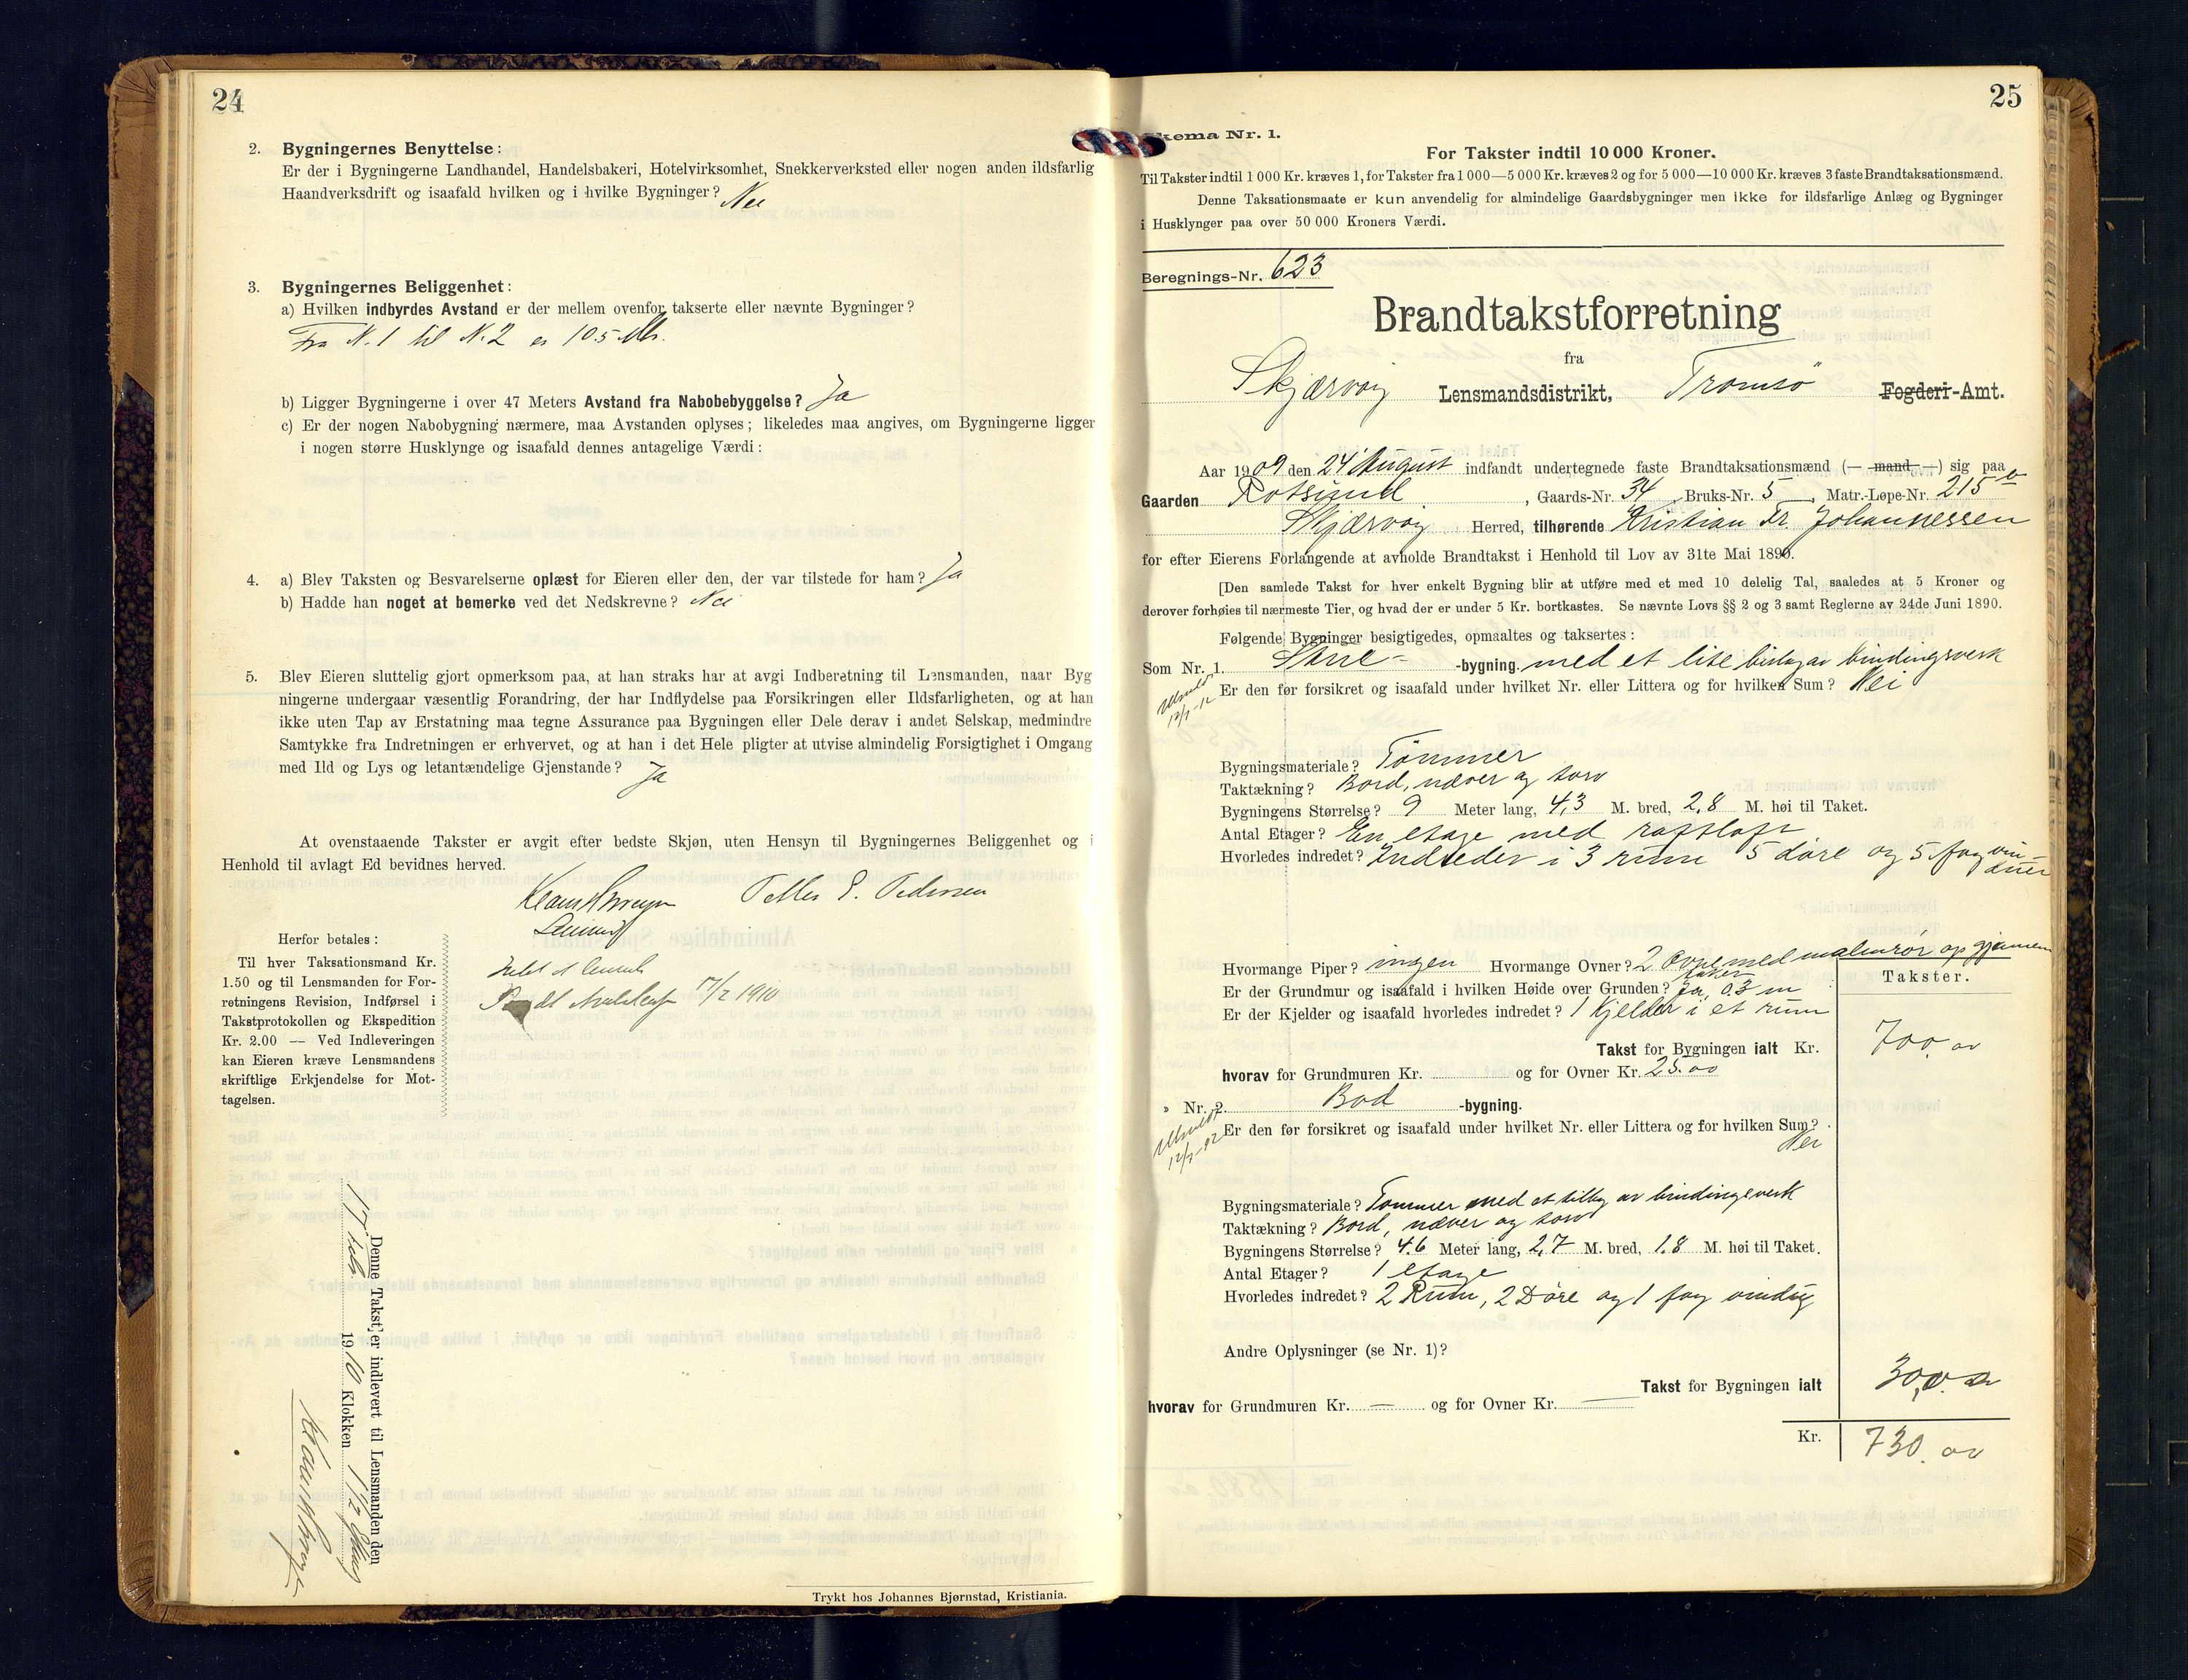 24
2. Bygningernes Benyttelse:
Er der i Bygningerne Landhandel, Handelsbakeri, Hotelvirksomhet, Snekkerverksted eller nogen anden ildsfarlig
Haandverksdrift og isaafald hvilken og i hvilke Bygninger? Nei
3. Bygningernes Beliggenhet:
a) Hvilken indbyrdes Avstand er der mellem ovenfor takserte eller nævnte Bygninger?
Fra N. 1 til N. 2 er 10.5 Mtr.
b) Ligger Bygningerne i over 47 Meters Avstand fra Nabobebyggelse? Ja
c) Er der nogen Nabobygning nærmere, maa Avstanden oplyses; likeledes maa angives, om Bygningerne ligger
i nogen større Husklynge og isaafald dennes antagelige Værdi:
4. a) Blev Taksten og Besvarelserne oplæst for Eieren eller den, der var tilstede for ham? Ja
b) Hadde han noget at bemerke ved det Nedskrevne? Nei
5. Blev Eieren sluttelig gjort opmerksom paa, at han straks har at avgi Indberetning til Lensmanden, naar Byg
ningerne undergaar væsentlig Forandring, der har Indflydelse paa Forsikringen eller Ildsfarligheten, og at han
ikke uten Tap av Erstatning maa tegne Assurance paa Bygningen eller Dele derav i andet Selskap, medmindre
Samtykke fra Indretningen er erhvervet, og at han i det Hele pligter at utvise almindelig Forsigtighet i Omgang
med Ild og Lys og letantændelige Gjenstande? Ja
At ovenstaaende Takster er avgit efter bedste Skjøn, uten Hensyn til Bygningernes Beliggenhet og i
Henhold til avlagt Ed bevidnes herved.
Peder E. Pedersen
Herfor betales:
Til hver Taksationsmand Kr.
1.50 og til Lensmanden for For-
retningens Revision, Indførsel i
Takstprotokollen og Ekspedition
Kr. 2.00 — Ved Indleveringen
kan Eieren kræve Lensmandens
skriftlige Erkjendelse for Mot-
tagelsen.
17/2 1910
Denne Takst er indlevert til Lensmanden den
17 febr. 1910 Klokken 1 1/2
Trykt hos Johannes Bjørnstad, Kristiania.
25
Skema Nr. 1.
For Takster indtil 10 000 Kroner.
Til Takster indtil 1 000 Kr. kræves 1, for Takster fra 1 000—5 000 Kr. kræves 2 og for 5 000—10 000 Kr. kræves 3 faste Brandtaksationsmænd.
Denne Taksationsmaate er kun anvendelig for almindelige Gaardsbygninger men ikke for ildsfarlige Anlæg og Bygninger
i Husklynger paa over 50 000 Kroners Værdi.
Beregnings-Nr. 623
Brandtakstforretning
fra
Skjærvøy Lensmandsdistrikt, Tromsø Fogderi-Amt.
Aar 1909 den 24 August indfandt undertegnede faste Brandtaksationsmænd (— mand —) sig paa
Gaarden Rotsund, Gaards-Nr. 34, Bruks-Nr. 5, Matr.-Løpe-Nr. 215 b
Skjærvøy Herred, tilhørende Kristian Fr. Johannessen
for efter Eierens Forlangende at avholde Brandtakst i Henhold til Lov av 31te Mai 1890.
[Den samlede Takst for hver enkelt Bygning blir at utføre med et med 10 delelig Tal, saaledes at 5 Kroner og
derover forhøies til nærmeste Tier, og hvad der er under 5 Kr. bortkastes. Se nævnte Lovs §§ 2 og 3 samt Reglerne av 24de Juni 1890.
Følgende Bygninger besigtigedes, opmaaltes og taksertes:
Som Nr. 1. Stue- -bygning. med et lite bislag av bindingsverk
Er den før forsikret og isaafald under hvilket Nr. eller Littera og for hvilken Sum? Nei
Utmeldt
12/7-12
Bygningsmateriale? Tømmer
Taktækning? Bord, næver og torv
Bygningens Størrelse? 9 Meter lang, 4,3 M. bred, 2,8 M. høi til Taket.
Antal Etager? En etage med røstloft
Hvorledes indredet? Indredet i 3 rum 5 døre og 5 fag vin-
duer
Hvormange Piper? ingen Hvormange Ovner? 2 Ovne med malmrør op gjennem
taket
Er der Grundmur og isaafald i hvilken Høide over Grunden? Ja, 0.3 m
Er der Kjelder og isaafald hvorledes indredet? 1 Kjelder i et rum
Takster.
Takst for Bygningen ialt Kr. 700.00
hvorav for Grundmuren Kr. og for Ovner Kr. 25.00
" Nr. 2. Bod -bygning.
Er den før forsikret og isaafald under hvilket Nr. eller Littera og for hvilken Sum?
Nei
Utmeldt
12/7-12
Bygningsmateriale? Tømmer med et tilbyg av bindingsverk
Taktækning? Bord, næver og torv
Bygningens Størrelse? 4.6 Meter lang, 2,7 M. bred, 1.8 M. høi til Taket.
Antal Etager? 1 etage
Hvorledes indredet? 2 Rum, 2 Døre og 1 fag vindu
Andre Oplysninger (se Nr. 1)?
Takst for Bygningen ialt 30,00
hvorav for Grundmuren Kr. — og for Ovner Kr. —
Kr. 730.00